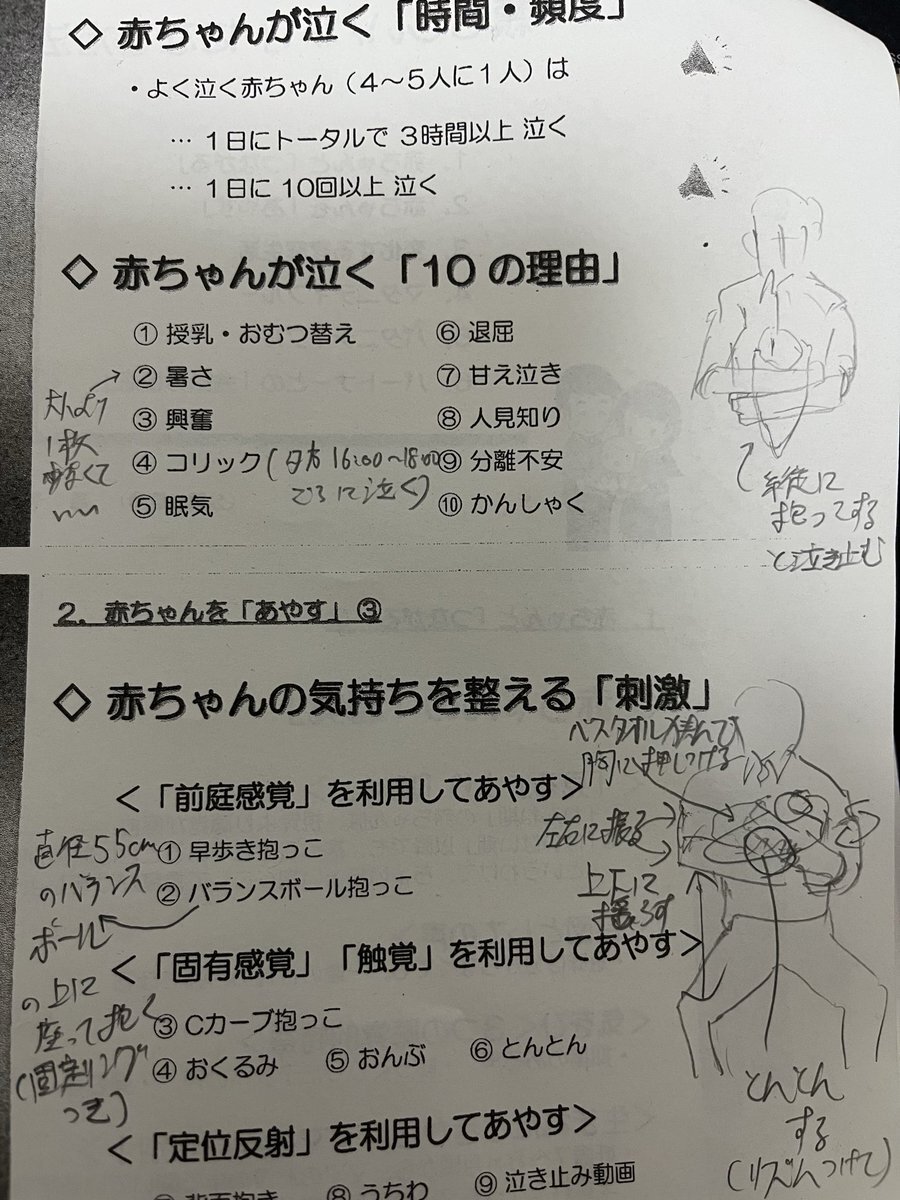 ◇ 赤ちゃんが泣く「時間・頻度」
・よく泣く赤ちゃん（４～５人に１人）は
… １日にトータルで ３時間以上 泣く
… １日に 10回以上 泣く
◇ 赤ちゃんが泣く「10 の理由」
① 授乳・おむつ替え
② 暑さ
③ 興奮
④ コリック(夕方 16:00～18:00
ごろに泣く)
⑤ 眠気
⑥ 退屈
⑦ 甘え泣き
⑧ 人見知り
⑨ 分離不安
⑩ かんしゃく
大人より
1枚
少なくて
いい
縦に
抱っこする
と泣き止む
２．赤ちゃんを「あやす」③
◇ 赤ちゃんの気持ちを整える「刺激」
バスタオル挟んで
胸に押しつける
＜「前庭感覚」を利用してあやす＞
① 早歩き抱っこ
② バランスボール抱っこ
直径55cm
のバランス
ボール
の上に
座って抱く
(固定リング
つき)
左右に振る
上下に
揺らす
＜「固有感覚」「触覚」を利用してあやす＞
③ Cカーブ抱っこ
④ おくるみ ⑤ おんぶ ⑥ とんとん
とんとん
する
(リズムつけて)
＜「定位反射」を利用してあやす＞
⑦ 背面抱き ⑧ うちわ ⑨ 泣き止み動画